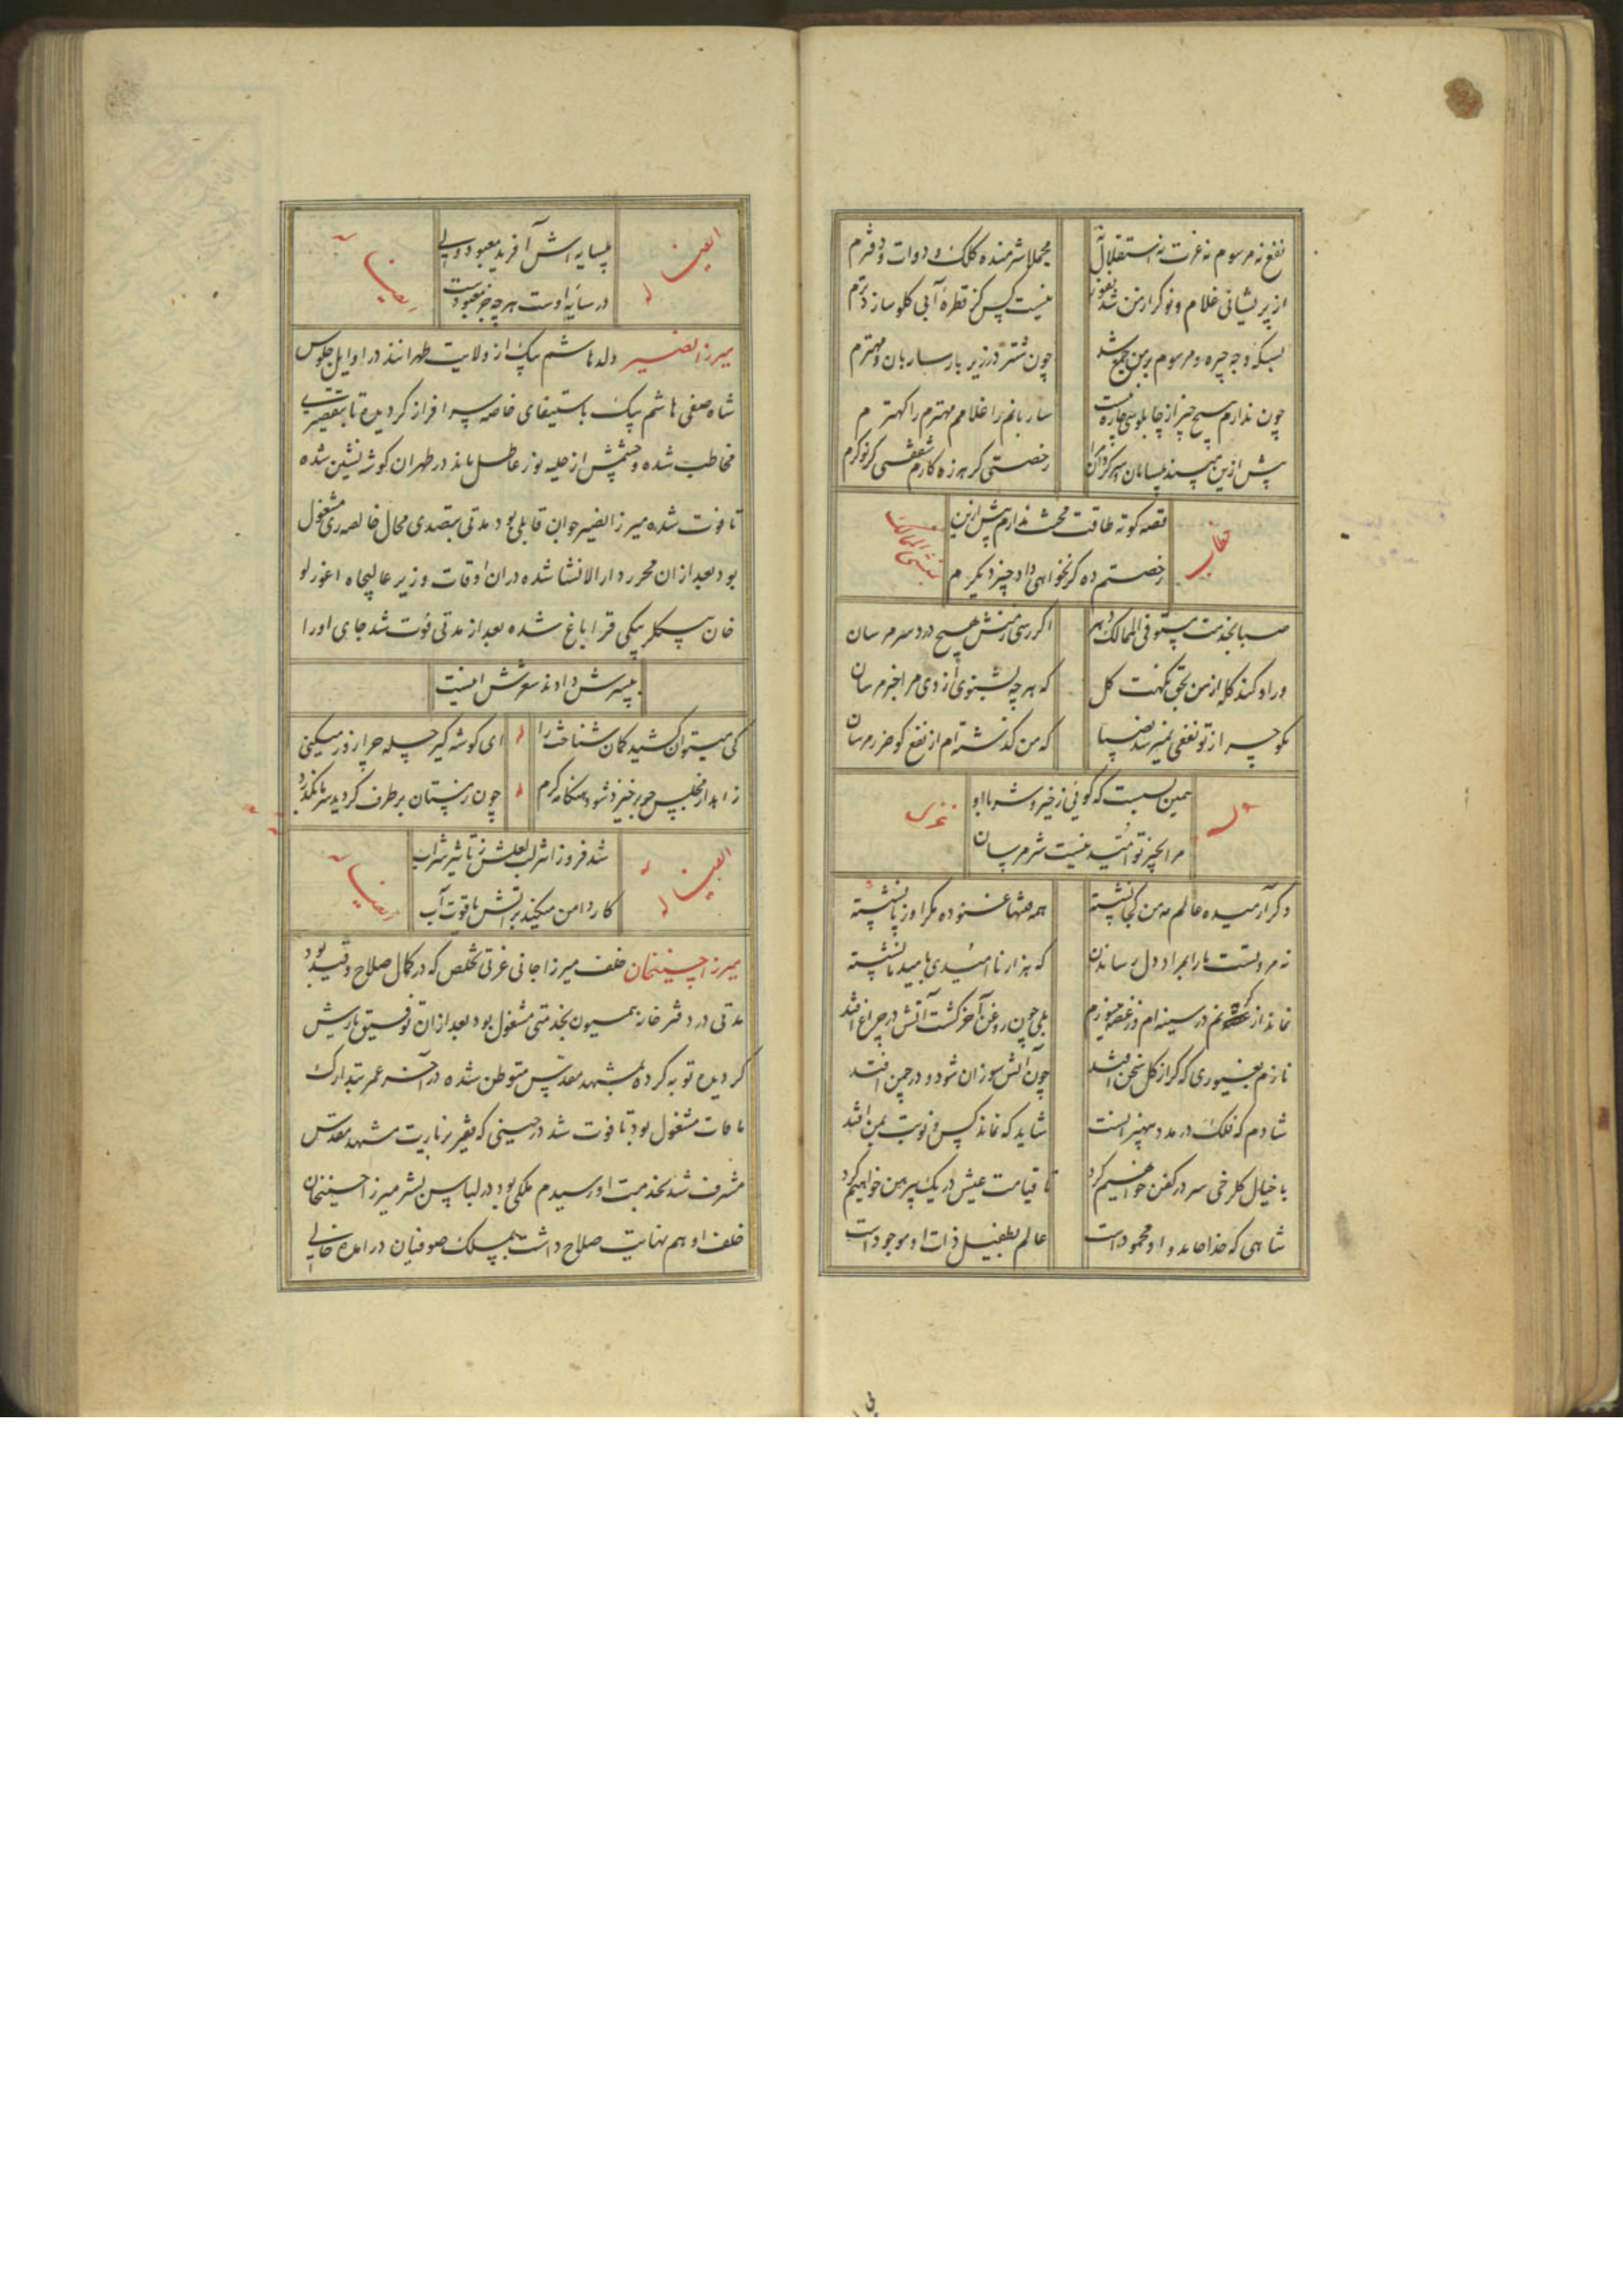 نفع نه مرسوم نه عزت نه استقلال نه
مجملا شرمنده کلک و دوات و دفترم
از پریشانی غلام و نوکر از من شد نفور
نیست کس کز قطره آبی کلو سازد ترم
بسکه وجه جیره و مرسوم بر من جمع شد
چون شتر در زیر بار ساربان و مهترم
چون ندارم هیچ چیز از چاپلوسی چاره نیست
ساربانم را غلامم مهترم را کهترم
پیش ازین مپسند بیسامان و سرکردان مرا
رخصتی کر هرزه کارم شفقتی کر نوکرم
خطاب
قصه کوته طاقت محنت ندارم پیش ازین
رخصتم ده کر نخواهی داد چیز دیکرم
بمستوفی الممالک
صبا بخدمت مستوفی الممالک دهر
اکر رسی ز منش هیچ دردسر مرسان
ور او کند کله از من بحق نکهت کل
که هرچه بشنوی از وی مرا خبر مرسان
بکو چه از تو نفعی نمیرسد بضیا
که من کذشته ام از نفع کو ضرر مرسان
وله
همین بست که کوئی ز خیر و شر با او
مرا بخیر تو امید نیست شر مرسان
غزل
دکر آرمیده عالم نه من کجا نشسته
همه فتنها غنوده مکر او ز پا نشسته
نه مروتست ما را بمراد دل رساندن
که هزار ناامیدی بامید ما نشسته
نماند از کریه نم در سینه ام در غصه میسوزم
بلی چون روغن آخر کشت آتش در چراغ افتد
نازم بغیوری که کر از کل سخن افتد
چون آتش سوزان شود و در چمن افتد
شادم که فلک در مدد بیهنرانست
شاید که نماند کس و نوبت بمن افتد
با خیال کلرخی سر در کفن خواهیم کرد
تا قیامت عیش در یک پیرهن خواهیم کرد
شاهی که خدا حامد و او محمود است
عالم بطفیل ذات او موجود است
ایضا له
بیسایه اش آفرید معبود ولی
در سایه اوست هرچه جز معبودست
رباعیات
میرزا نصیر ولد هاشم بیک از ولایت طهرانند در اوایل جلوس
شاه صفی هاشم بیک باستیفای خاصه سرافراز کردیده تا بتقصیری
مخاطب شده و چشمش از حلیه نور عاطل ماند در طهران کوشه نشین شده
تا فوت شده میرزا نصیر جوان قابلی بود مدتی بتصدی محال خالصه ری مشغول
بود بعد از ان محرر دارالانشا شده در ان اوقات وزیر عالیجاه اغورلو
خان بیکلربیکی قراباغ شده بعد از مدتی فوت شد جای او را
بپسرش دادند شعرش اینست
کی میتوان کشید کمان شناخت را
له
ای کوشه کیر چله چرا زور میکنی
زاهد از مجلس چو برخیزد شود هنکامه کرم
له
چون زمستان بر طرف کردید سرما بکذرد
ایضا له
شد فروز اثر لب لعلش ز تاثیر شراب
کار دامن میکند بر آتش یاقوت آب
رباعیات
میرزا حسینخان خلف میرزا جانی عزتی تخلص که در کمال صلاح و قید بود
مدتی در دفترخانه همیون بخدمتی مشغول بود بعد از ان توفیق یارش
کردیده توبه کرده بمشهد مقدس متوطن شده در آخر عمر بتدارک
مافات مشغول بود تا فوت شد در حینی که فقیر بزیارت مشهد مقدس
مشرف شد بخدمت او رسیدم ملکی بود در لباس بشر میرزا حسینخان
خلف او هم نهایت صلاح داشت بمسلک صوفیان در آمده خالی